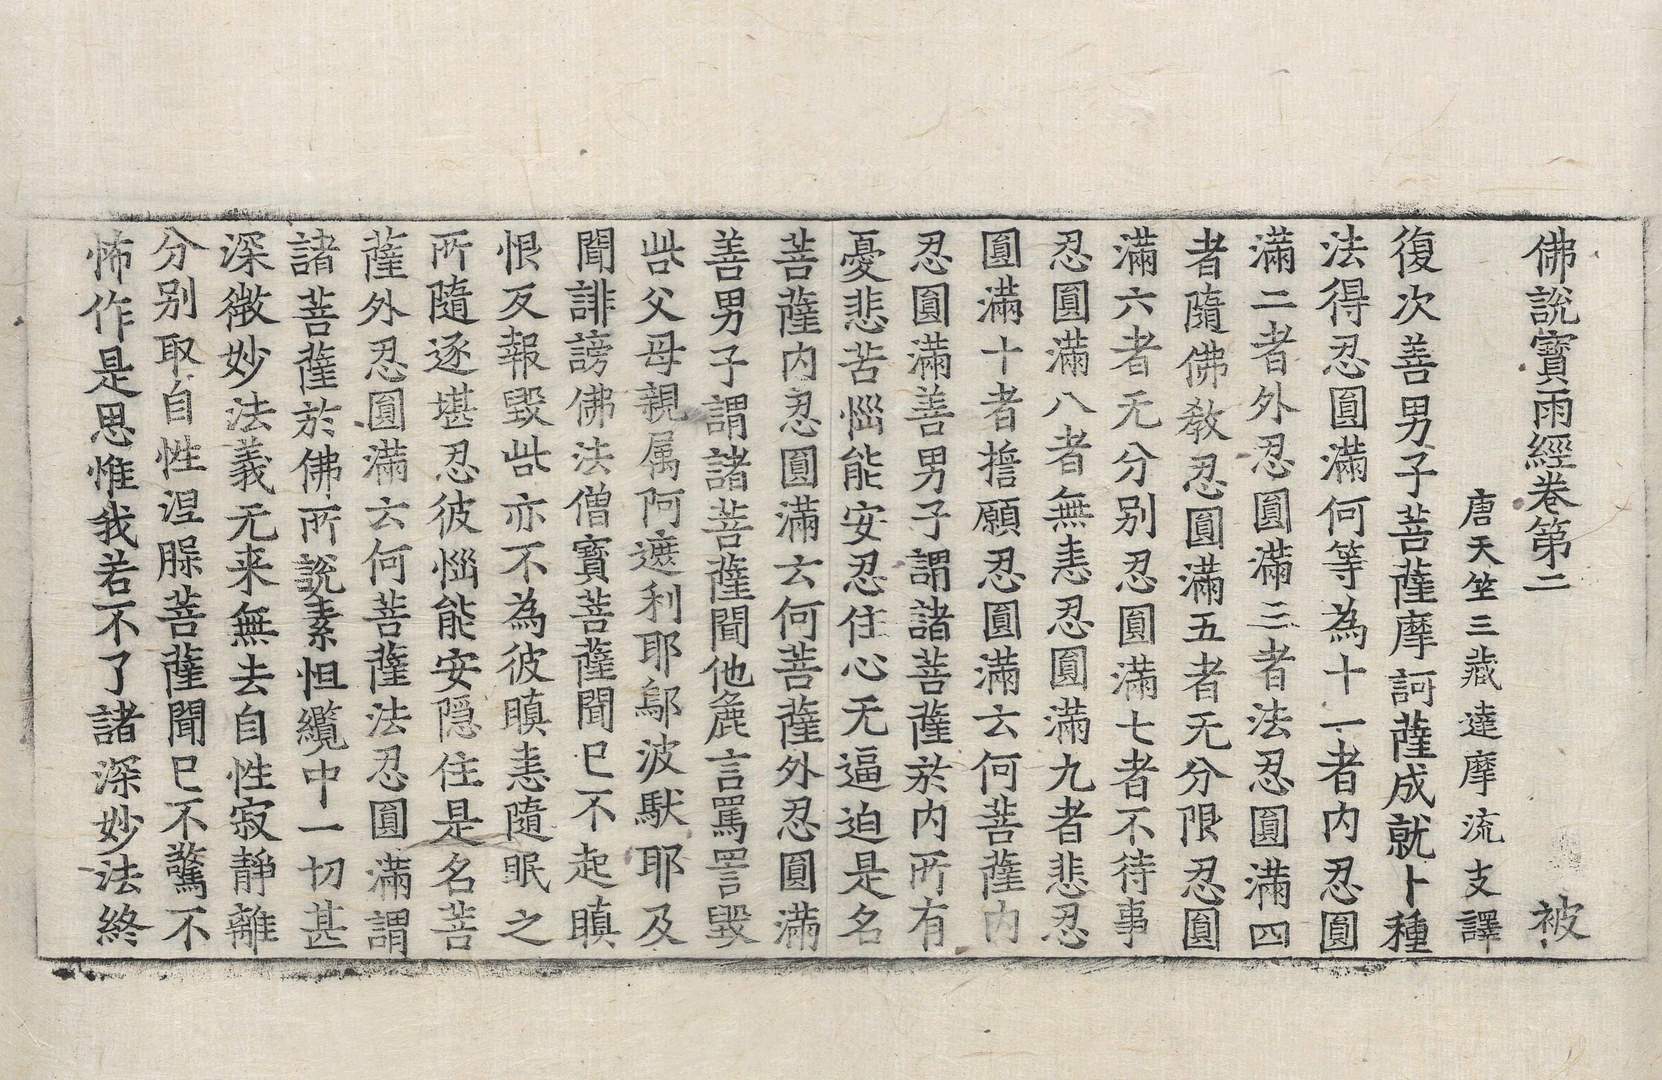 佛說寶雨經卷第二 被
唐天竺三藏達摩流支譯
復次善男子菩薩摩訶薩成就十種
法得忍圓滿何等為十一者內忍圓
滿二者外忍圓滿三者法忍圓滿四
者隨佛教忍圓滿五者无分限忍圓
滿六者无分别忍圓滿七者不待事
忍圓滿八者無恚忍圓滿九者悲忍
圓滿十者誓願忍圓滿云何菩薩内
忍圓滿善男子謂諸菩薩於内所有
憂悲苦惱能安忍住心无逼迫是名
菩薩内忍圓滿云何菩薩外忍圓滿
善男子謂諸菩薩聞他麁言罵詈毀
呰父母親属阿遮利耶鄔波馱耶及
聞誹謗佛法僧寶菩薩聞已不起瞋
恨反報毀呰亦不為彼瞋恚隨眠之
所隨逐堪忍彼惱能安隠住是名菩
薩外忍圓滿云何菩薩法忍圓滿謂
諸菩薩於佛所說素怛纜中一切甚
深微妙法義无来無去自性寂靜離
分别取自性涅槃菩薩聞已不驚不
怖作是思惟我若不了諸深妙法終